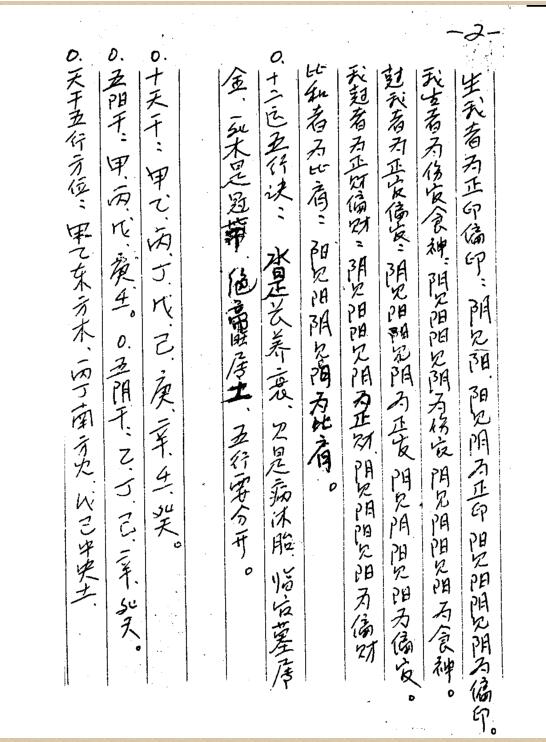 -2-
生我者为正印偏印：阴见阳、阳见阴为正印 阳见阳阴见阴为偏印。
我生者为伤官食神：阴见阳阳见阴为伤官 阴见阴阳见阳为食神。
克我者为正官偏官：阴见阳阳见阴为正官 阴见阴阳见阳为偏官。
我克者为正财偏财：阴见阳阳见阴为正财、阴见阴阳见阳为偏财
比和者为比肩：阳见阳阴见阴为比肩。
0.十二运五行诀：水是长养衰、火是病沐胎 临官墓属
金、死木是冠带 绝 居土、五行要分开。
0.十天干：甲、乙、丙、丁、戊、己、庚、辛、壬、癸。
0.五阳干：甲、丙、戊、庚、壬。0.五阴干：乙、丁、己、辛、癸。
0.天干五行方位：甲乙东方木、丙丁南方火、戊己中央土、